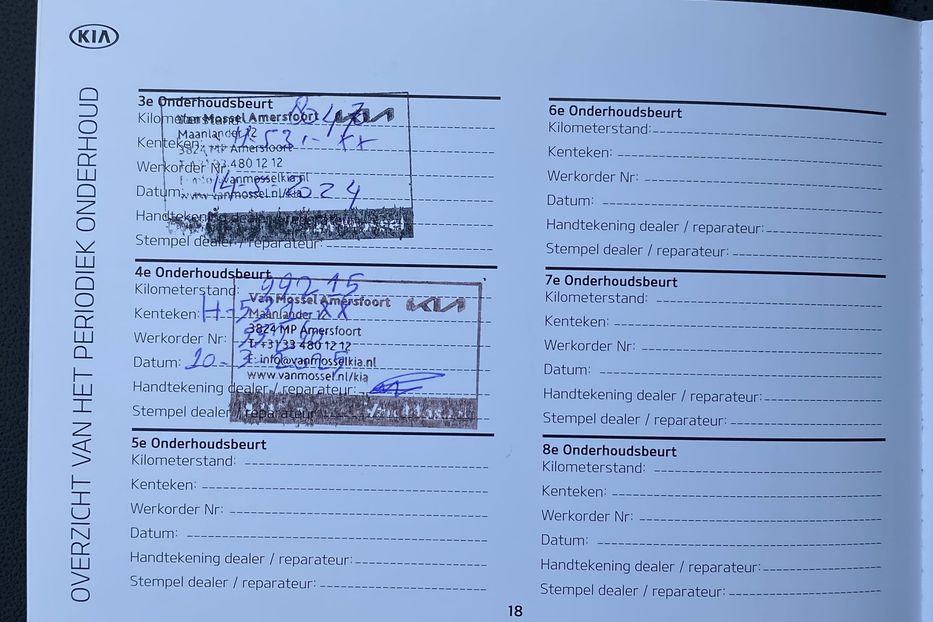 KIA
OVERZICHT VAN HET PERIODIEK ONDERHOUD
3e Onderhoudsbeurt
Kilometerstand:
Van Mossel Amersfoort KIA
Maanlander 12
Kenteken:
3824 MP Amersfoort
Werkorder Nr:
33 480 12 12
vanmosselkia.nl
Datum: 14-3-2024
www.vanmossel.nl/kia
Handtekening dealer / reparateur:
Stempel dealer / reparateur:
4e Onderhoudsbeurt
Kilometerstand: 99215
Van Mossel Amersfoort KIA
Kenteken:
Maanlander 12
3824 MP Amersfoort
Werkorder Nr:
T: +31 33 480 12 12
Datum: 20-3-2025
E: info@vanmosselkia.nl
www.vanmossel.nl/kia
Handtekening dealer / reparateur:
Stempel dealer / reparateur:
Van Mossel
5e Onderhoudsbeurt
Kilometerstand:
Kenteken:
Werkorder Nr:
Datum:
Handtekening dealer / reparateur:
Stempel dealer / reparateur:
6e Onderhoudsbeurt
Kilometerstand:
Kenteken:
Werkorder Nr:
Datum:
Handtekening dealer / reparateur:
Stempel dealer / reparateur:
7e Onderhoudsbeurt
Kilometerstand:
Kenteken:
Werkorder Nr:
Datum:
Handtekening dealer / reparateur:
Stempel dealer / reparateur:
8e Onderhoudsbeurt
Kilometerstand:
Kenteken:
Werkorder Nr:
Datum:
Handtekening dealer / reparateur:
Stempel dealer / reparateur:
18